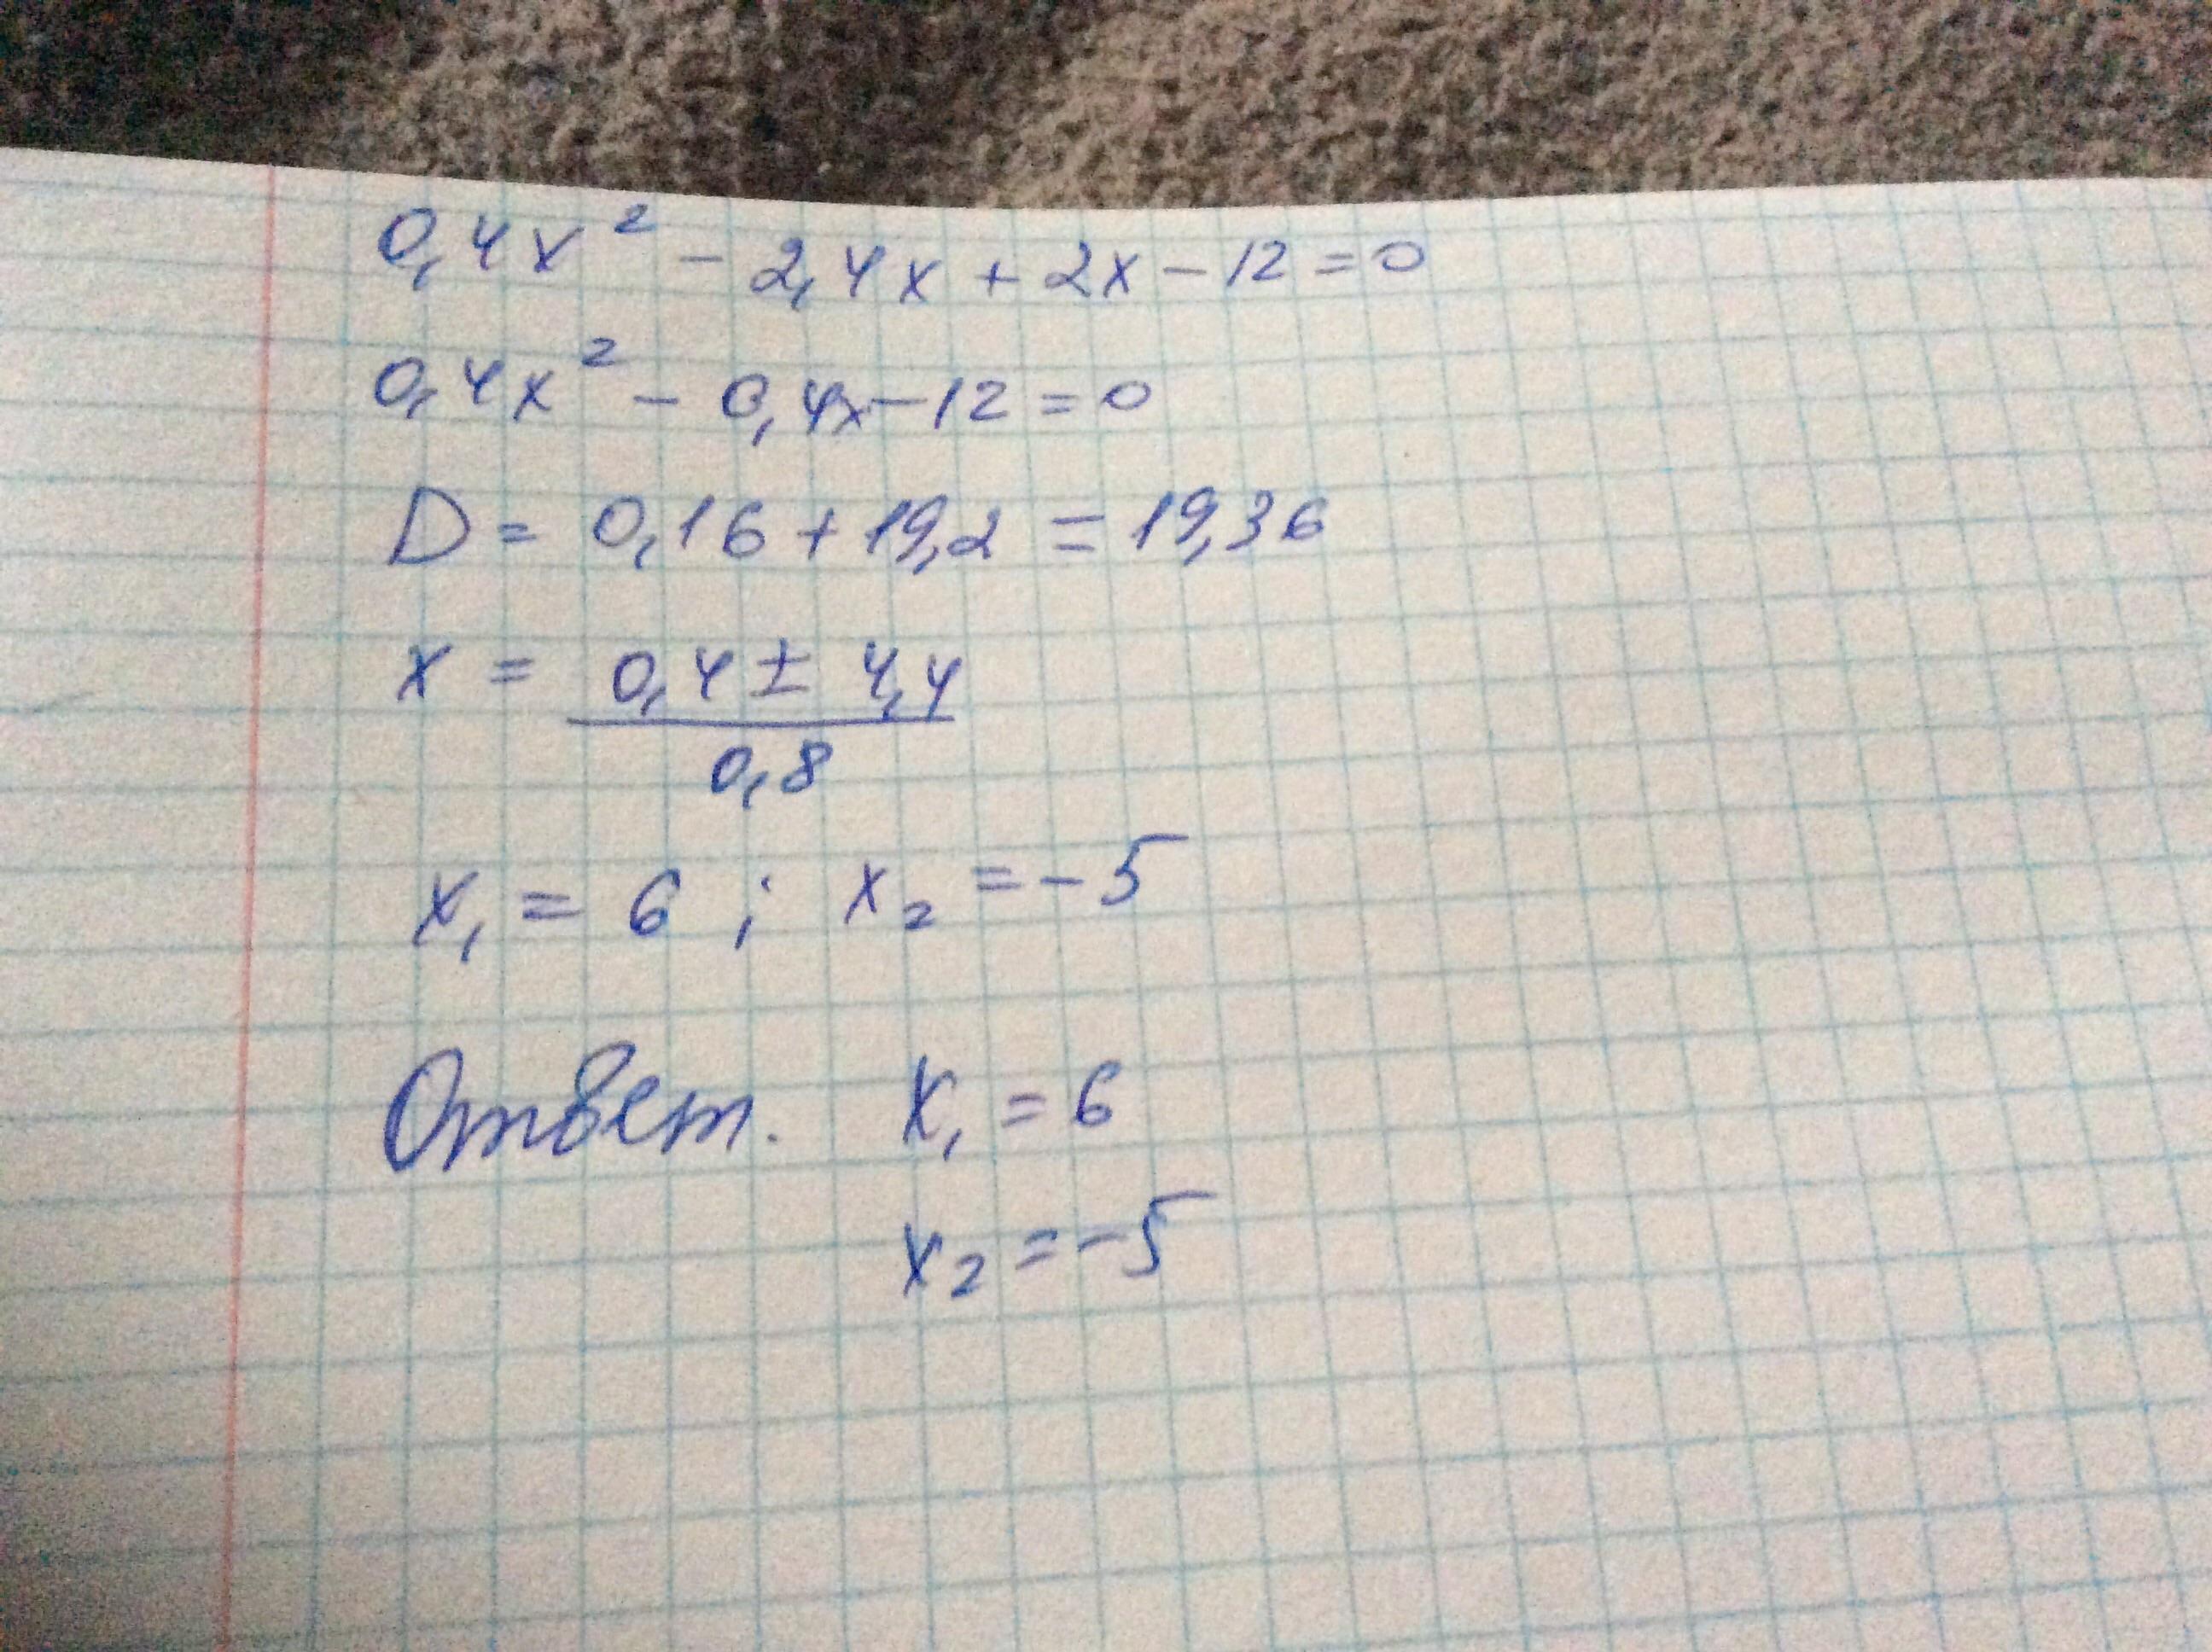 0,4x² - 2,4x + 2x - 12 = 0
0,4x² - 0,4x - 12 = 0
D = 0,16 + 19,2 = 19,36
x = (0,4 ± 4,4) / 0,8
x₁ = 6 ; x₂ = -5
Ответ. x₁ = 6
x₂ = -5